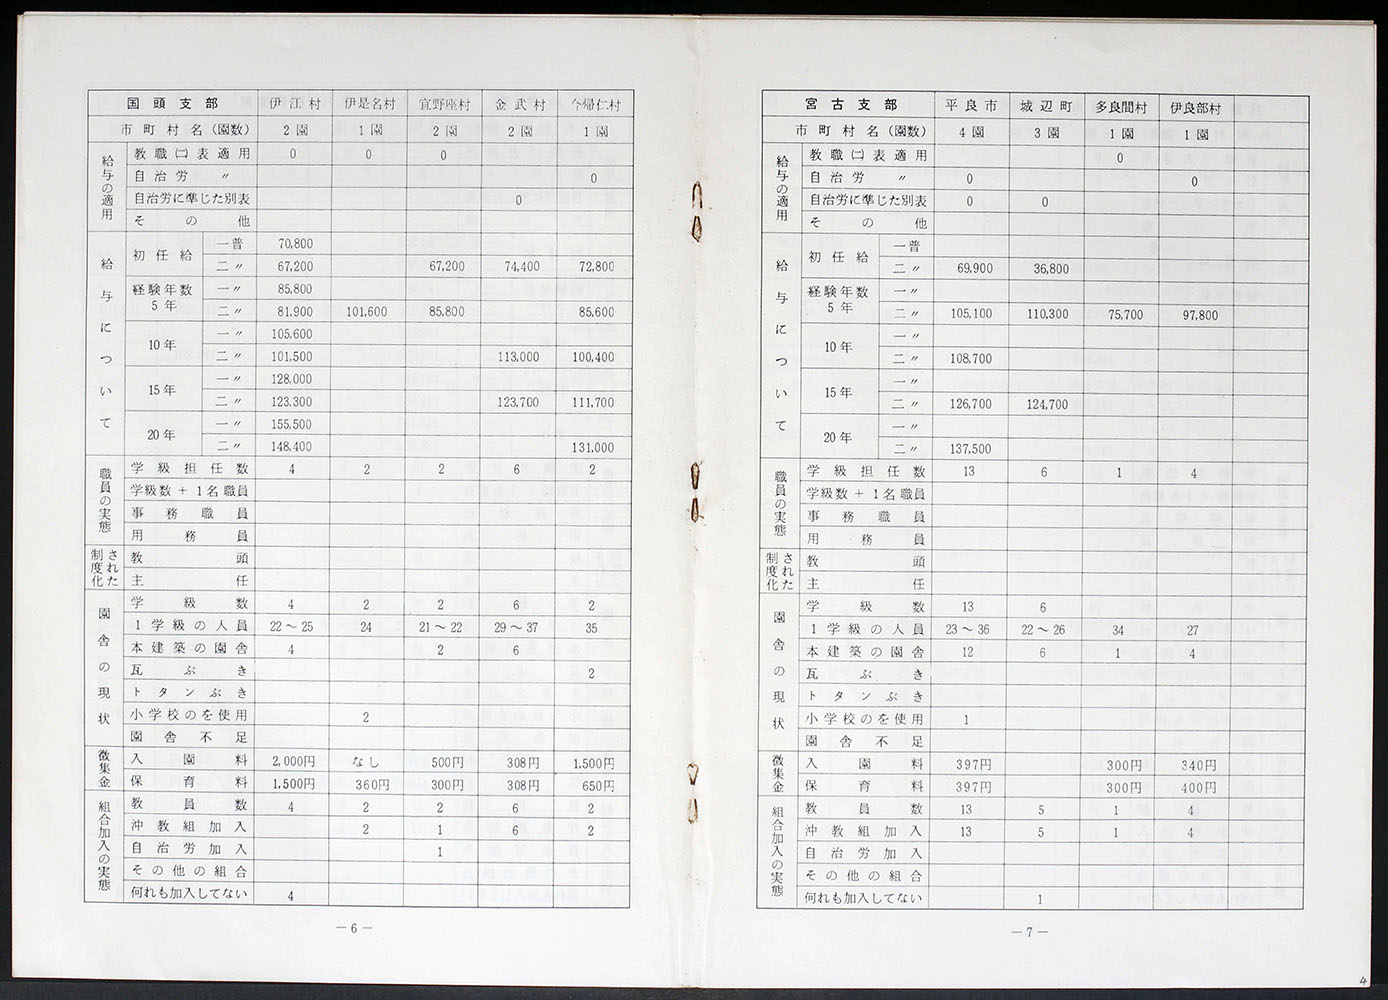 国頭支部 伊江村 伊是名村 宜野座村 金武村 今帰仁村
市町村名(園数) 2園 1園 2園 2園 1園
給与の適用
教職㈡表適用 0 0 0
自治労 〃 0
自治労に準じた別表 0
その他
給与について
初任給 一普 70,800
二〃 67,200 67,200 74,400 72,800
経験年数5年 一〃 85,800
二〃 81,900 101,600 85,800 85,600
10年 一〃 105,600
二〃 101,500 113,000 100,400
15年 一〃 128,000
二〃 123,300 123,700 111,700
20年 一〃 155,500
二〃 148,400 131,000
職員の実態
学級担任数 4 2 2 6 2
学級数+1名職員
事務職員
用務員
制度化された
教頭
主任
園舎の現状
学級数 4 2 2 6 2
1学級の人員 22～25 24 21～22 29～37 35
本建築の園舎 4 2 6
瓦ぶき 2
トタンぶき
小学校のを使用 2
園舎不足
徴集金
入園料 2,000円 なし 500円 308円 1,500円
保育料 1,500円 360円 300円 308円 650円
組合加入の実態
教員数 4 2 2 6 2
沖教組加入 2 1 6 2
自治労加入 1
その他の組合
何れも加入してない 4
－6－
宮古支部 平良市 城辺町 多良間村 伊良部村
市町村名(園数) 4園 3園 1園 1園
給与の適用
教職㈡表適用 0
自治労 〃 0 0
自治労に準じた別表 0 0
その他
給与について
初任給 一普
二〃 69,900 36,800
経験年数5年 一〃
二〃 105,100 110,300 75,700 97,800
10年 一〃
二〃 108,700
15年 一〃
二〃 126,700 124,700
20年 一〃
二〃 137,500
職員の実態
学級担任数 13 6 1 4
学級数+1名職員
事務職員
用務員
制度化された
教頭
主任
園舎の現状
学級数 13 6
1学級の人員 23～36 22～26 34 27
本建築の園舎 12 6 1 4
瓦ぶき
トタンぶき
小学校のを使用 1
園舎不足
徴集金
入園料 397円 300円 340円
保育料 397円 300円 400円
組合加入の実態
教員数 13 5 1 4
沖教組加入 13 5 1 4
自治労加入
その他の組合
何れも加入してない 1
－7－
4